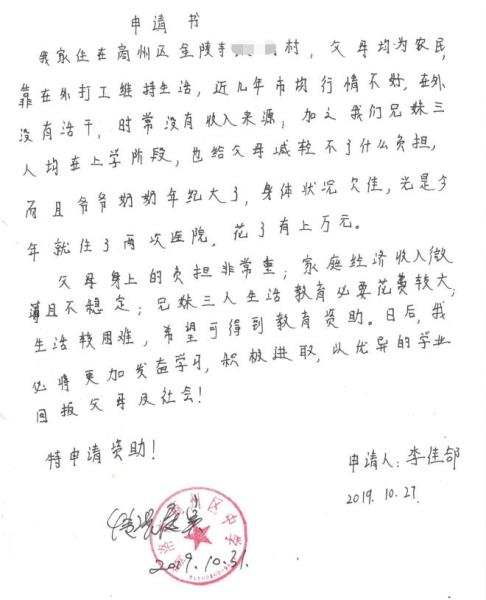 申请书
我家住在商州区金陵寺村，父母均为农民，
靠在外打工维持生活，近几年市均行情不好，在外
没有活干，时常没有收入来源，加之我们兄妹三
人均在上学阶段，也给父母减轻不了什么负担，
而且爷爷奶奶年纪大了，身体状况欠佳，光是今
年就住了两次医院，花了有上万元。
父母身上的负担非常重；家庭经济收入微
薄且不稳定；兄妹三人生活教育必要花费较大；
生活较困难，希望可得到教育资助。日后，我
必将更加发奋学习，积极进取，以优异的学业
回报父母及社会！
特申请资助！
申请人：李佳郃
2019.10.27.
情况属实
州区中学
2019.10.31.